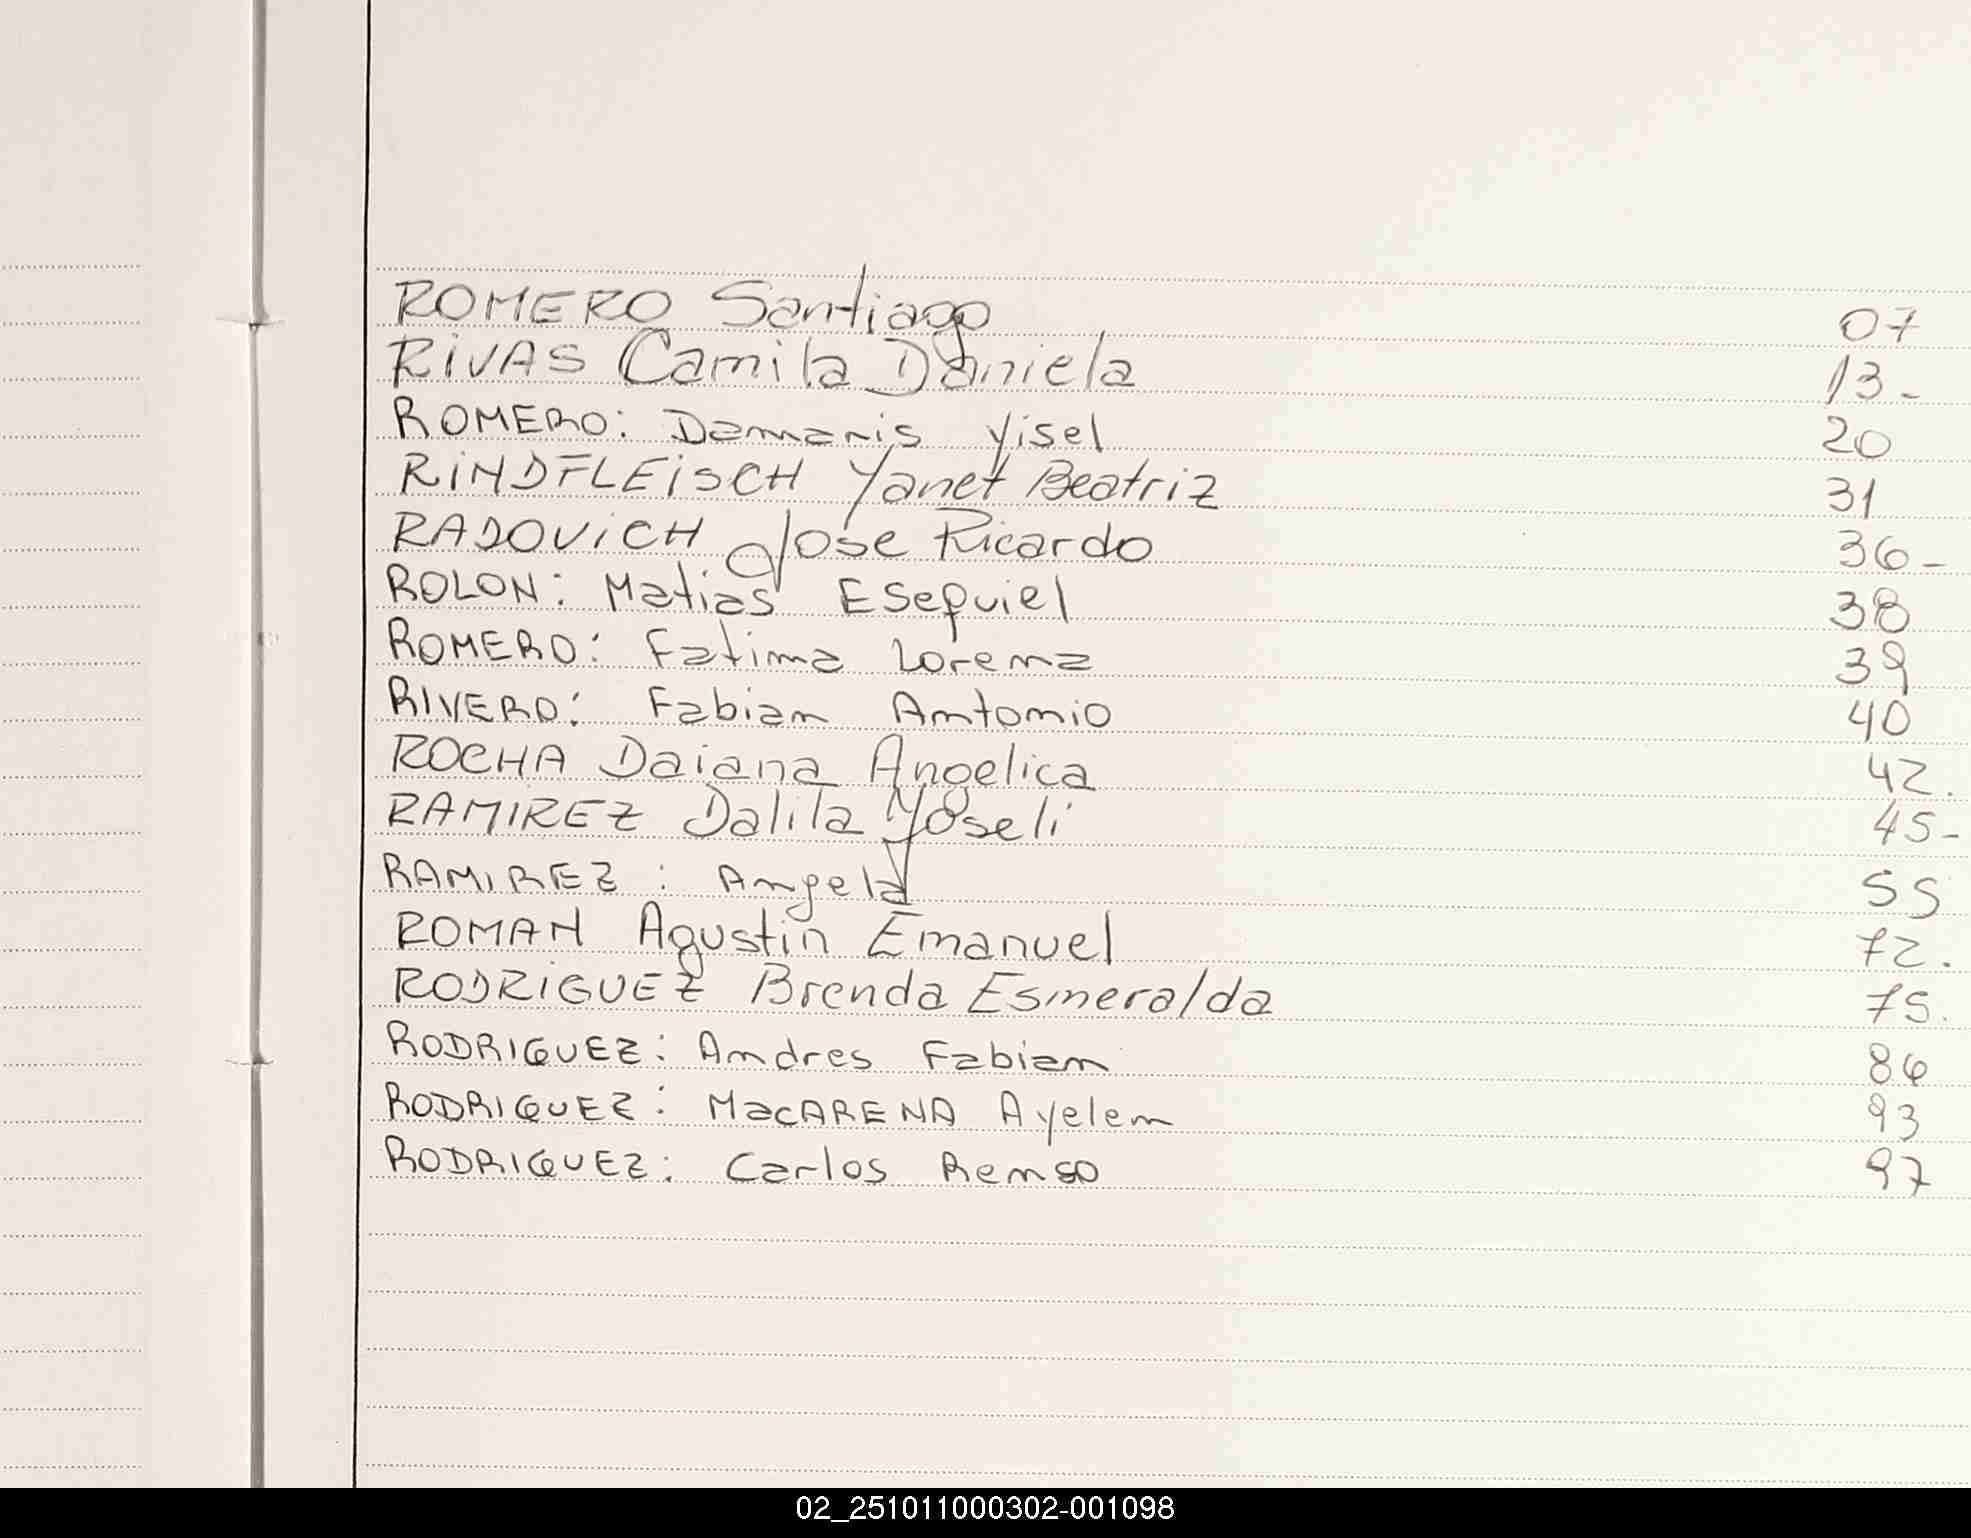 ROMERO Santiago 07
RIVAS Camila Daniela 13-
ROMERO: Damaris Yisel 20
RINDFLEISCH Yanet Beatriz 31
RADOVICH Jose Ricardo 36-
ROLON: Matias Esequiel 38
ROMERO: Fatima Lorena 39
RIVERO: Fabian Antonio 40
ROCHA Daiana Angelica 42.
RAMIREZ Dalila Yoseli 45-
RAMIREZ: Angela 55
ROMAN Agustin Emanuel 72.
RODRIGUEZ Brenda Esmeralda 75.
RODRIGUEZ: Andres Fabian 86
RODRIGUEZ: MacARENA Ayelen 93
RODRIGUEZ: Carlos Renso 97
02_251011000302-001098